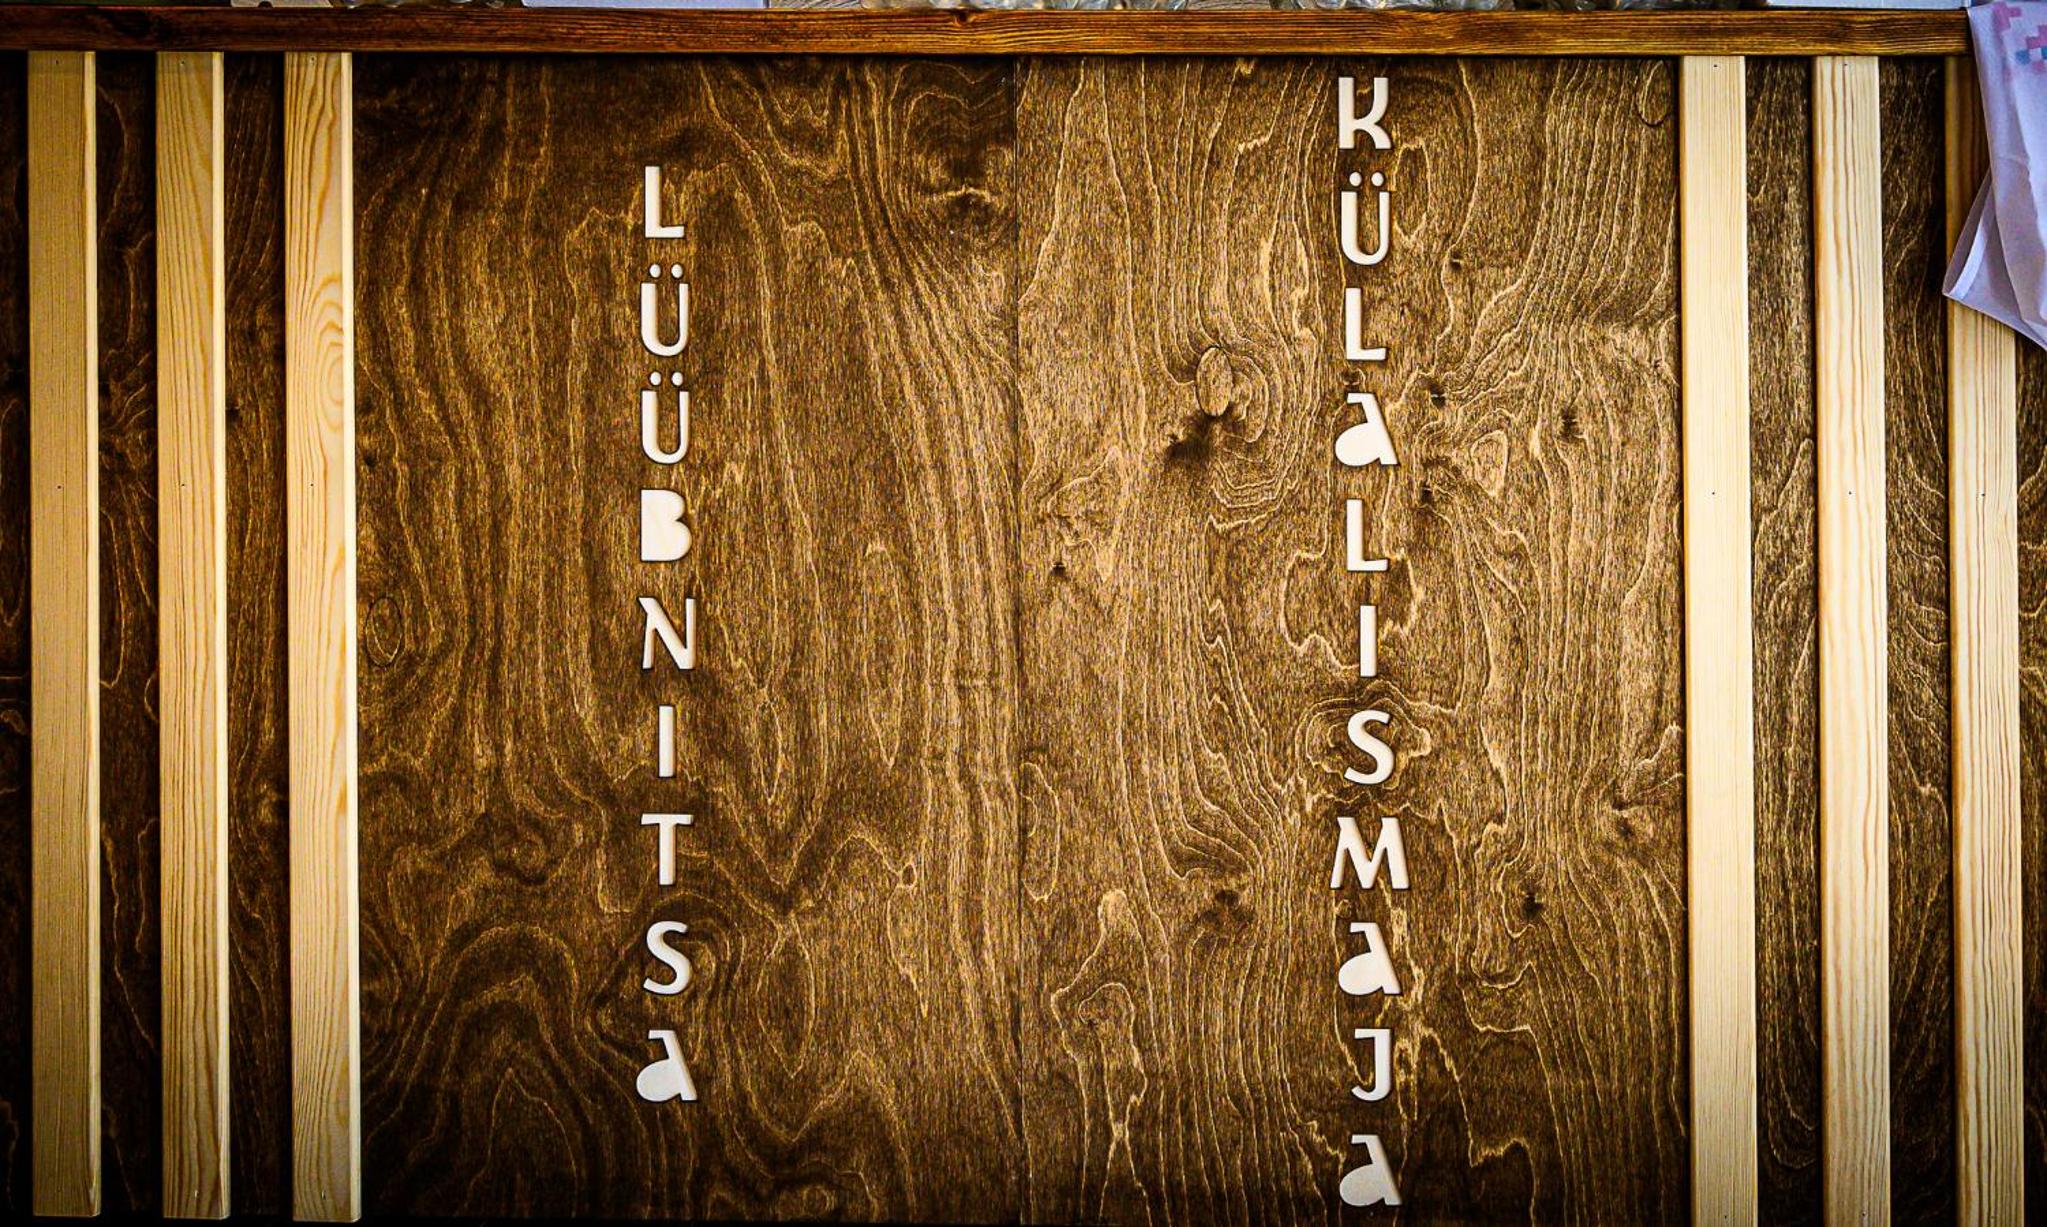 LÜÜBNITSA
KÜLALISMAJA